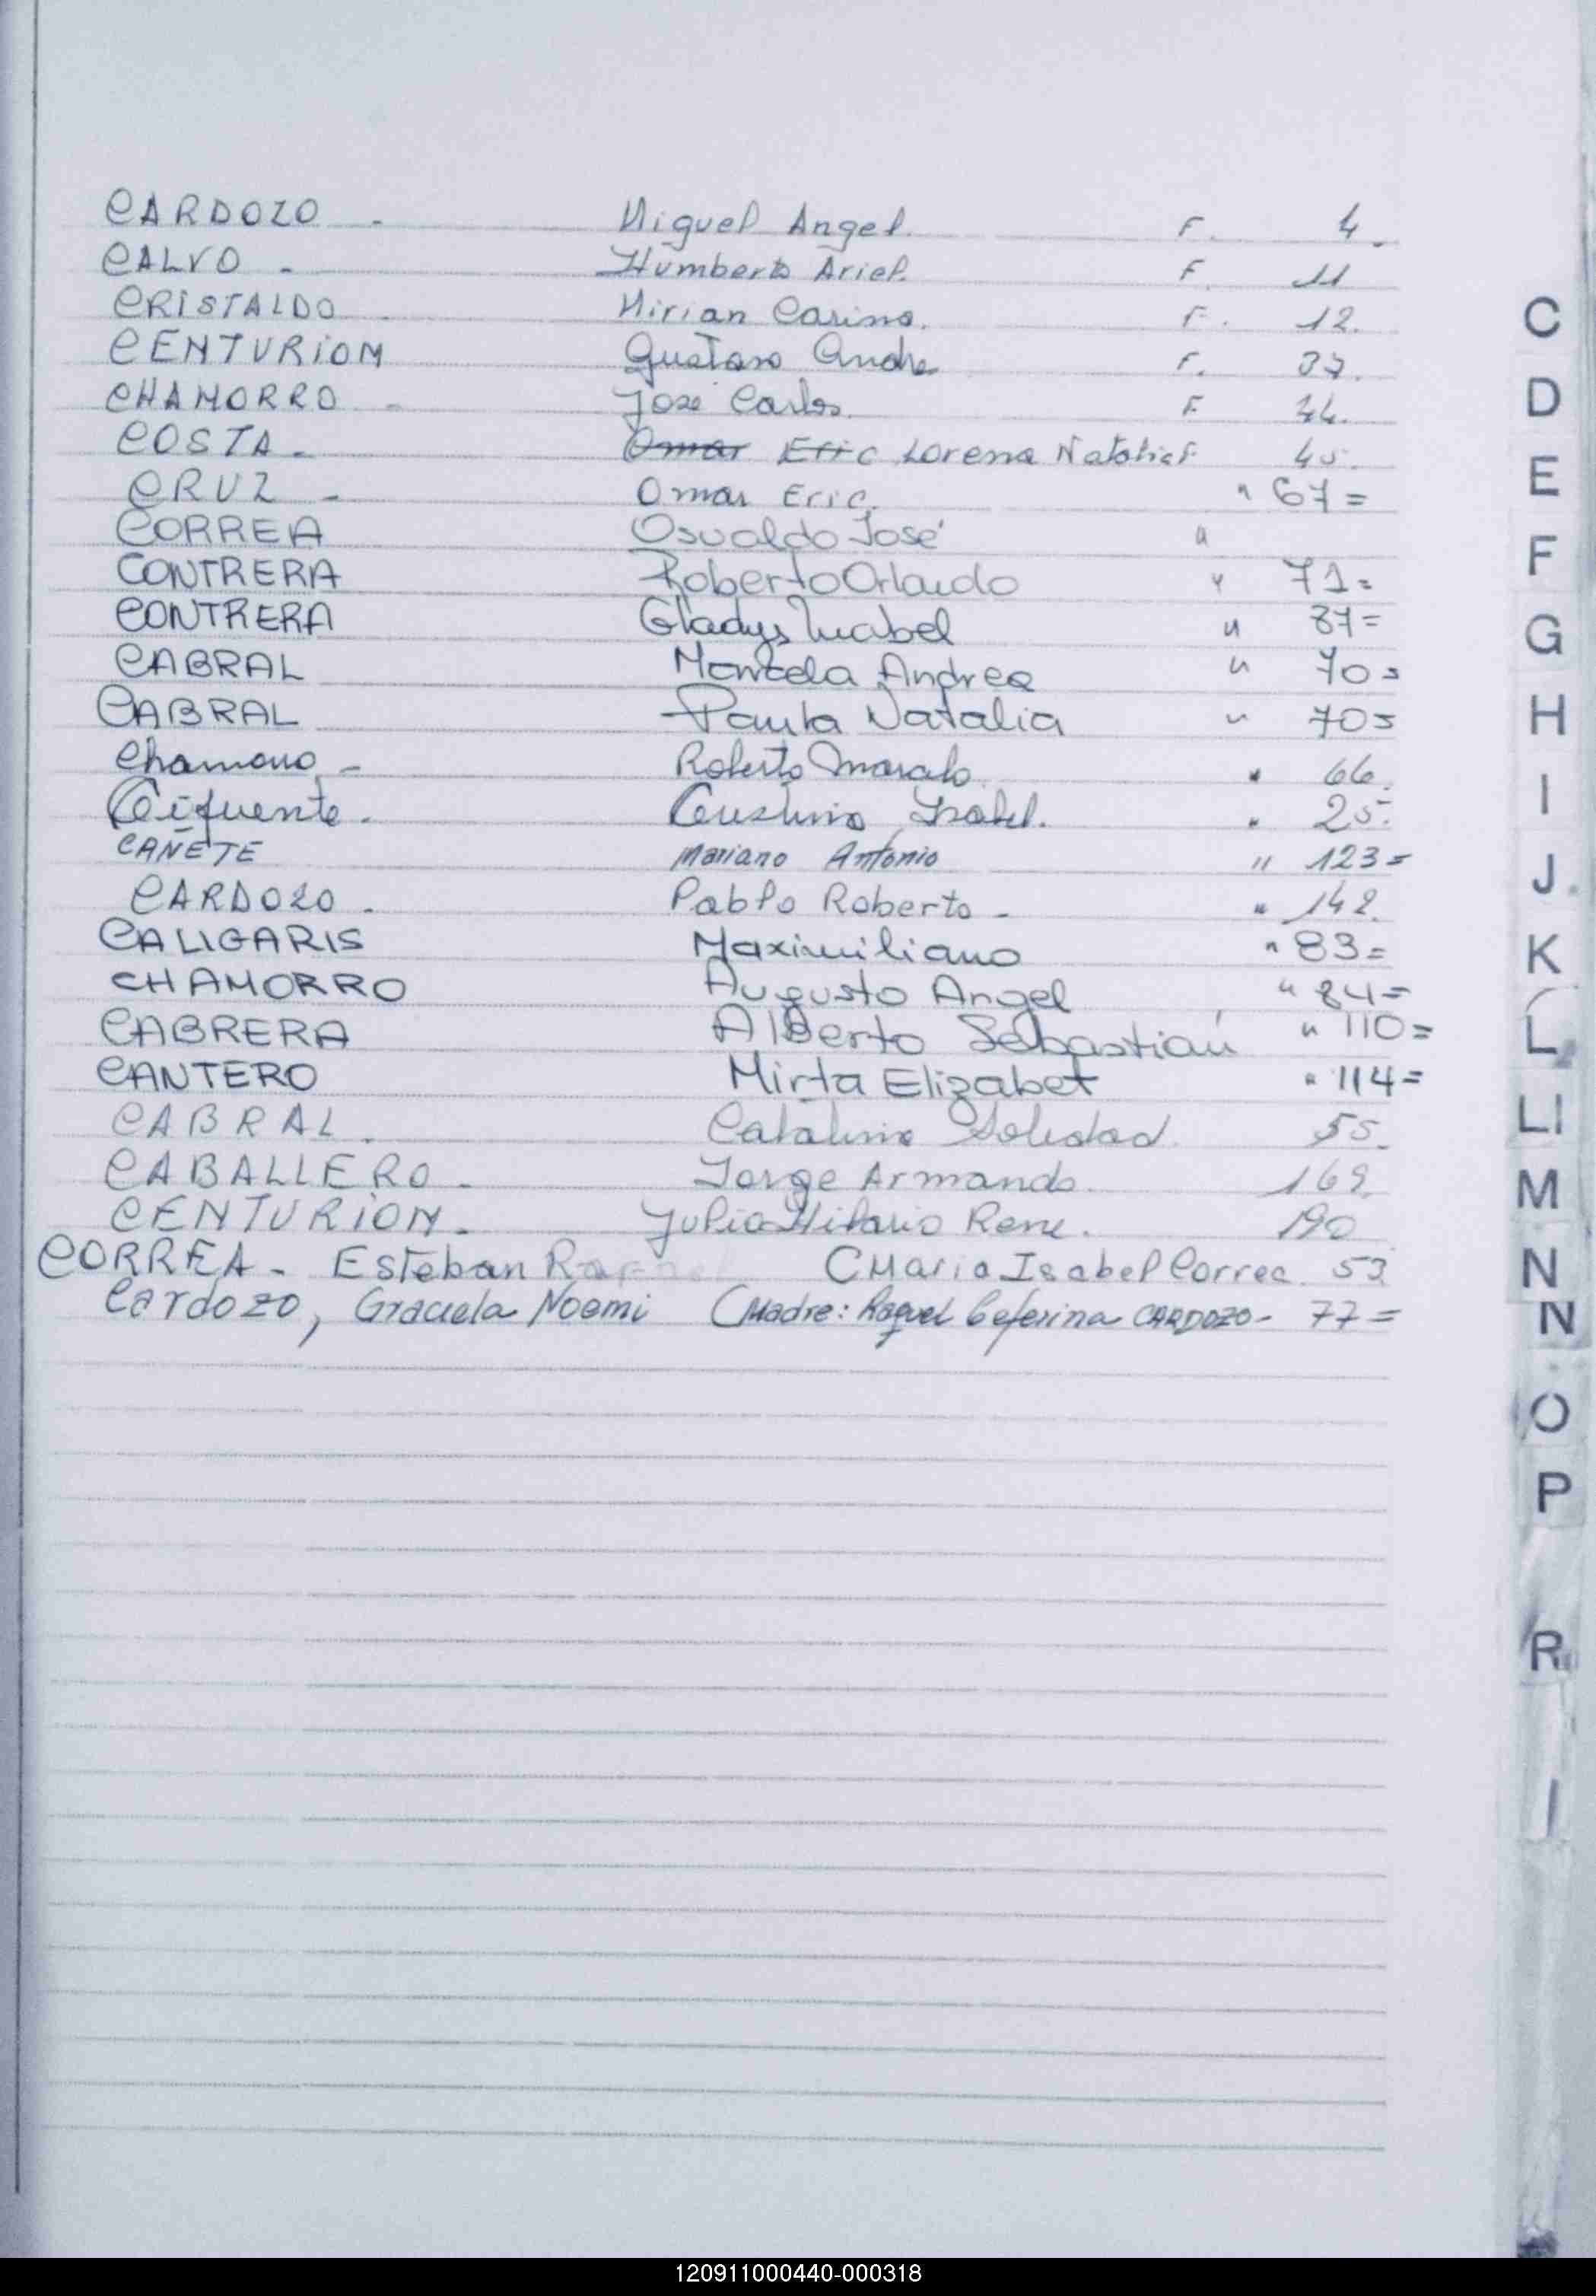 CARDOZO - Miguel Angel. F. 4.
CALVO - Humberto Ariel. F. 11
CRISTALDO Mirian Carina. F. 12.
CENTURION Gustavo Andre F. 37.
CHAMORRO - José Carlos. F. 44.
COSTA - Omar Eric Lorena Natalia F. 45.
CRUZ - Omar Eric. " 67=
CORREA Osvaldo José "
CONTRERA Roberto Orlando " 71=
CONTRERA Gladys Mabel " 87=
CABRAL Marcela Andrea " 70=
CABRAL Paula Natalia " 70=
Chamorro - Roberto Marcelo " 66.
Cifuente. Cristina Isabel. " 25.
CAÑETE Mariano Antonio " 123=
CARDOZO - Pablo Roberto - " 142.
CALIGARIS Maximiliano " 83=
CHAMORRO Augusto Angel " 84=
CABRERA Alberto Sebastián " 110=
CANTERO Mirta Elizabet " 114=
CABRAL. Catalina Soledad. 55.
CABALLERO - Jorge Armando. 169.
CENTURION. Julio Hilario Rene. 190
CORREA - Esteban Rafael (Maria Isabel Correa 53
Cardozo, Graciela Noemi (Madre: Raquel Ceferina CARDOZO - 77=
C
D
E
F
G
H
I
J
K
L
Ll
M
N
N
O
P
R
120911000440-000318